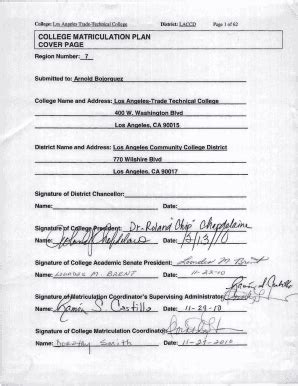 College: Los Angeles Trade-Technical College District: LACCD Page 1 of 62
COLLEGE MATRICULATION PLAN
COVER PAGE
Region Number: 7
Submitted to: Arnold Bojorquez
College Name and Address: Los Angeles-Trade Technical College
400 W. Washington Blvd
Los Angeles, CA 90015
District Name and Address: Los Angeles Community College District
770 Wilshire Blvd
Los Angeles, CA 90017
Signature of District Chancellor:
Name: Date:
Signature of College President: Dr. Roland "Chip" Chapdelaine
Name: Roland Chapdelaine Date: 12/13/10
Signature of College Academic Senate President: Lourdes M Brent
Name: LOURDES M. BRENT Date: 11-23-10
Signature of Matriculation Coordinator's Supervising Administrator: Ramon S. Castillo
Name: Ramon S. Castillo Date: 11-29-10
Signature of College Matriculation Coordinator:
Name: DOROTHY SMITH Date: 11-29-2010